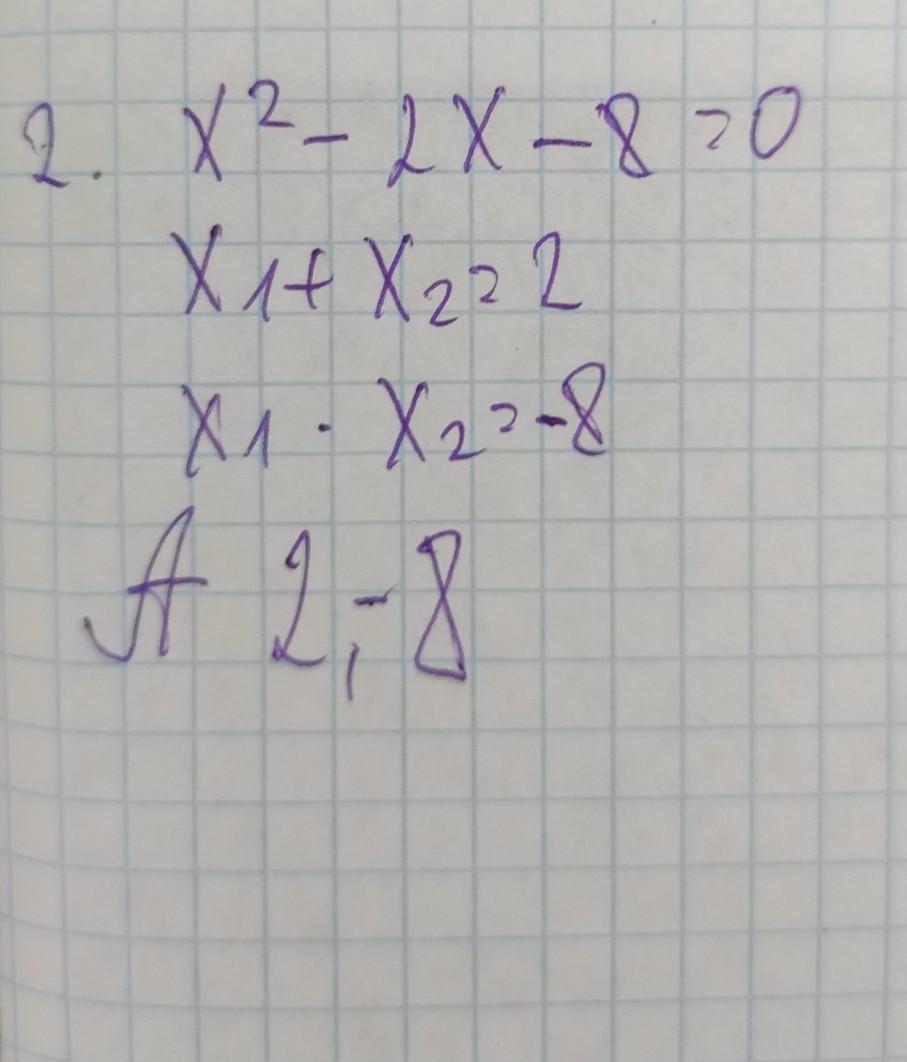 2. x² - 2x - 8 = 0
x₁ + x₂ = 2
x₁ · x₂ = -8
A 2, -8